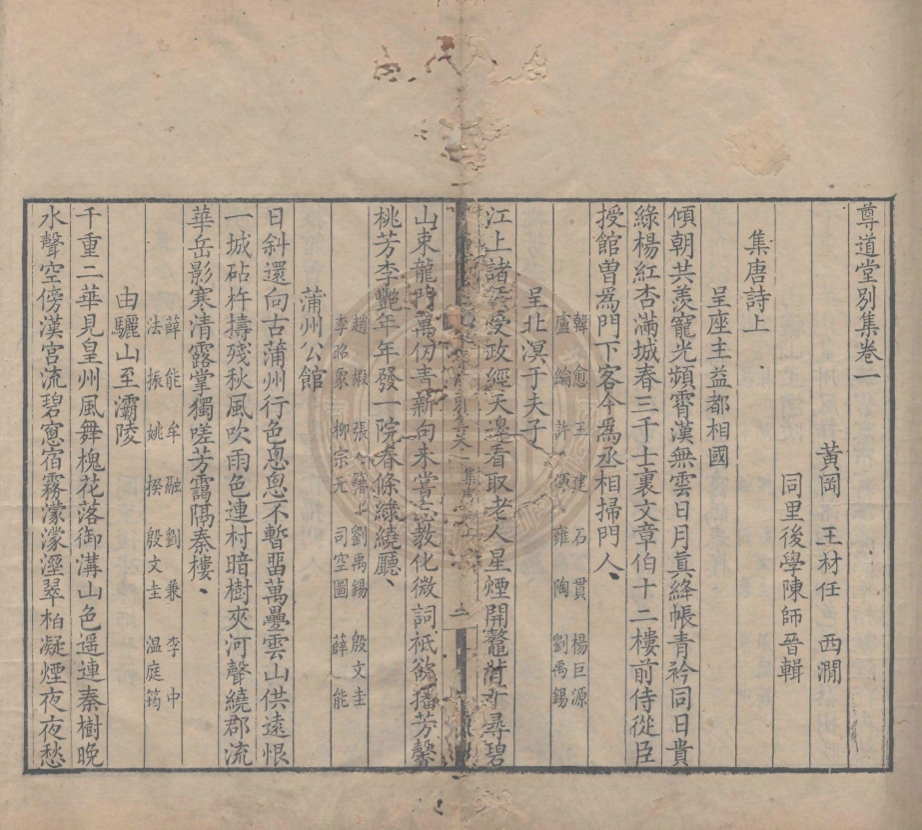 尊道堂別集卷一
黃岡　王材任　西澗
同里後學陳師晉輯
集唐詩上
呈座主益都相國
傾朝共羨寵光頻霄漢無雲日月真絳帳青衿同日貴
綠楊紅杏滿城春三千士裏文章伯十二樓前侍從臣
授館曾爲門下客今爲丞相掃門人
韓愈　王建　石貫　楊巨源
盧綸　許渾　雍陶　劉禹錫
呈北溟于夫子
江上諸受政經天邊看取老人星煙開鼇背尋碧
山束龍門萬仞青新句未嘗忘教化微詞祇欲播芳馨
桃芳李艷年年發一院春條綠繞廳
趙嘏　張籍　劉禹錫　殷文圭
李昭象　柳宗元　司空圖　薛能
蒲州公館
日斜還向古蒲州行色悤悤不暫畱萬疊雲山供遠恨
一城砧杵擣殘秋風吹雨色連村暗樹夾河聲繞郡流
華岳影寒清露掌獨嗟芳靄隔秦樓
薛能　牟融　劉兼　李中
法振　姚揆　殷文圭　温庭筠
由驪山至灞陵
千重二華見皇州風舞槐花落御溝山色遥連秦樹晚
水聲空傍漢宮流碧窻宿霧濛濛溼翠柏凝煙夜夜愁